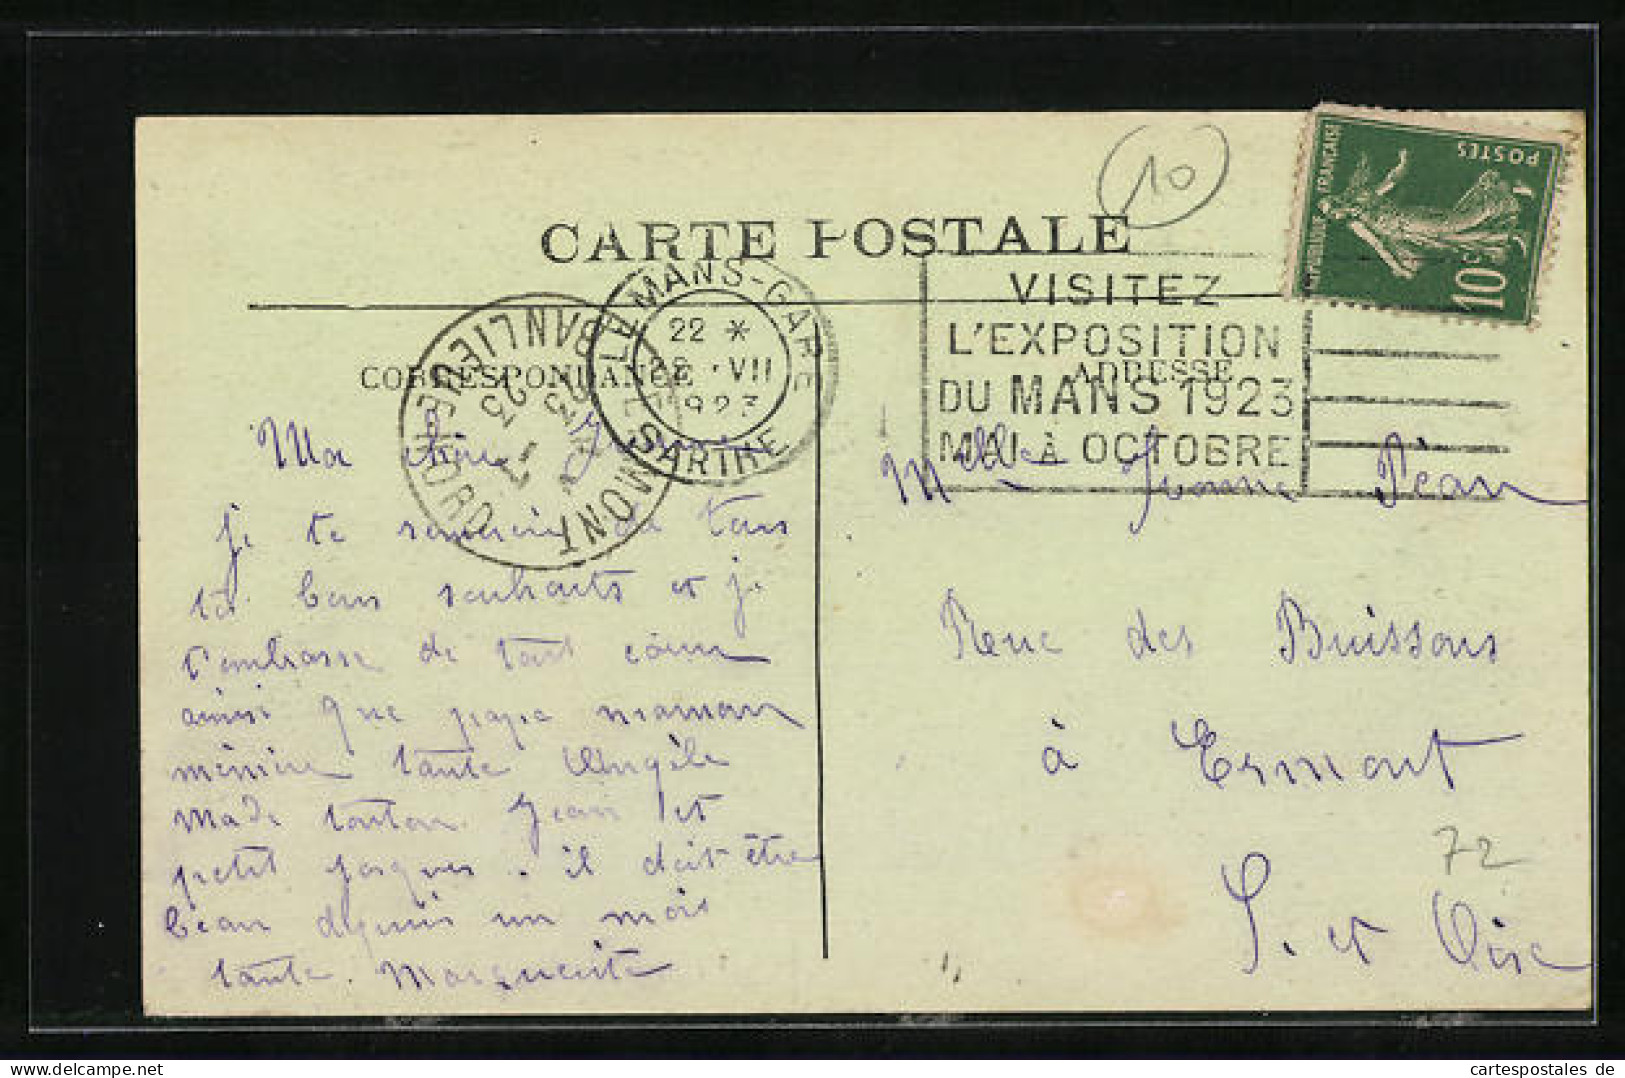 10
CARTE POSTALE
POSTES
FRANÇAISE
10c
LE MANS-GARE
22 *
28 · VII
1923
SARTHE
VISITEZ
L'EXPOSITION
DU MANS 1923
MAI À OCTOBRE
BANLIEUE NORD
ERMONT
CORRESPONDANCE
ADRESSE
Ma chère Yvonne
je te remercie de tous
tes bons souhaits et je
t'embrasse de tout cœur
ainsi que papa maman
mémère tante Angèle
Made tonton Jean et
petit Jacques. il doit être
beau depuis un mois
tante Marguerite
Melle Yvonne Péan
Rue des Buissons
à Ermont
S. et Oise
72
cartespostales de